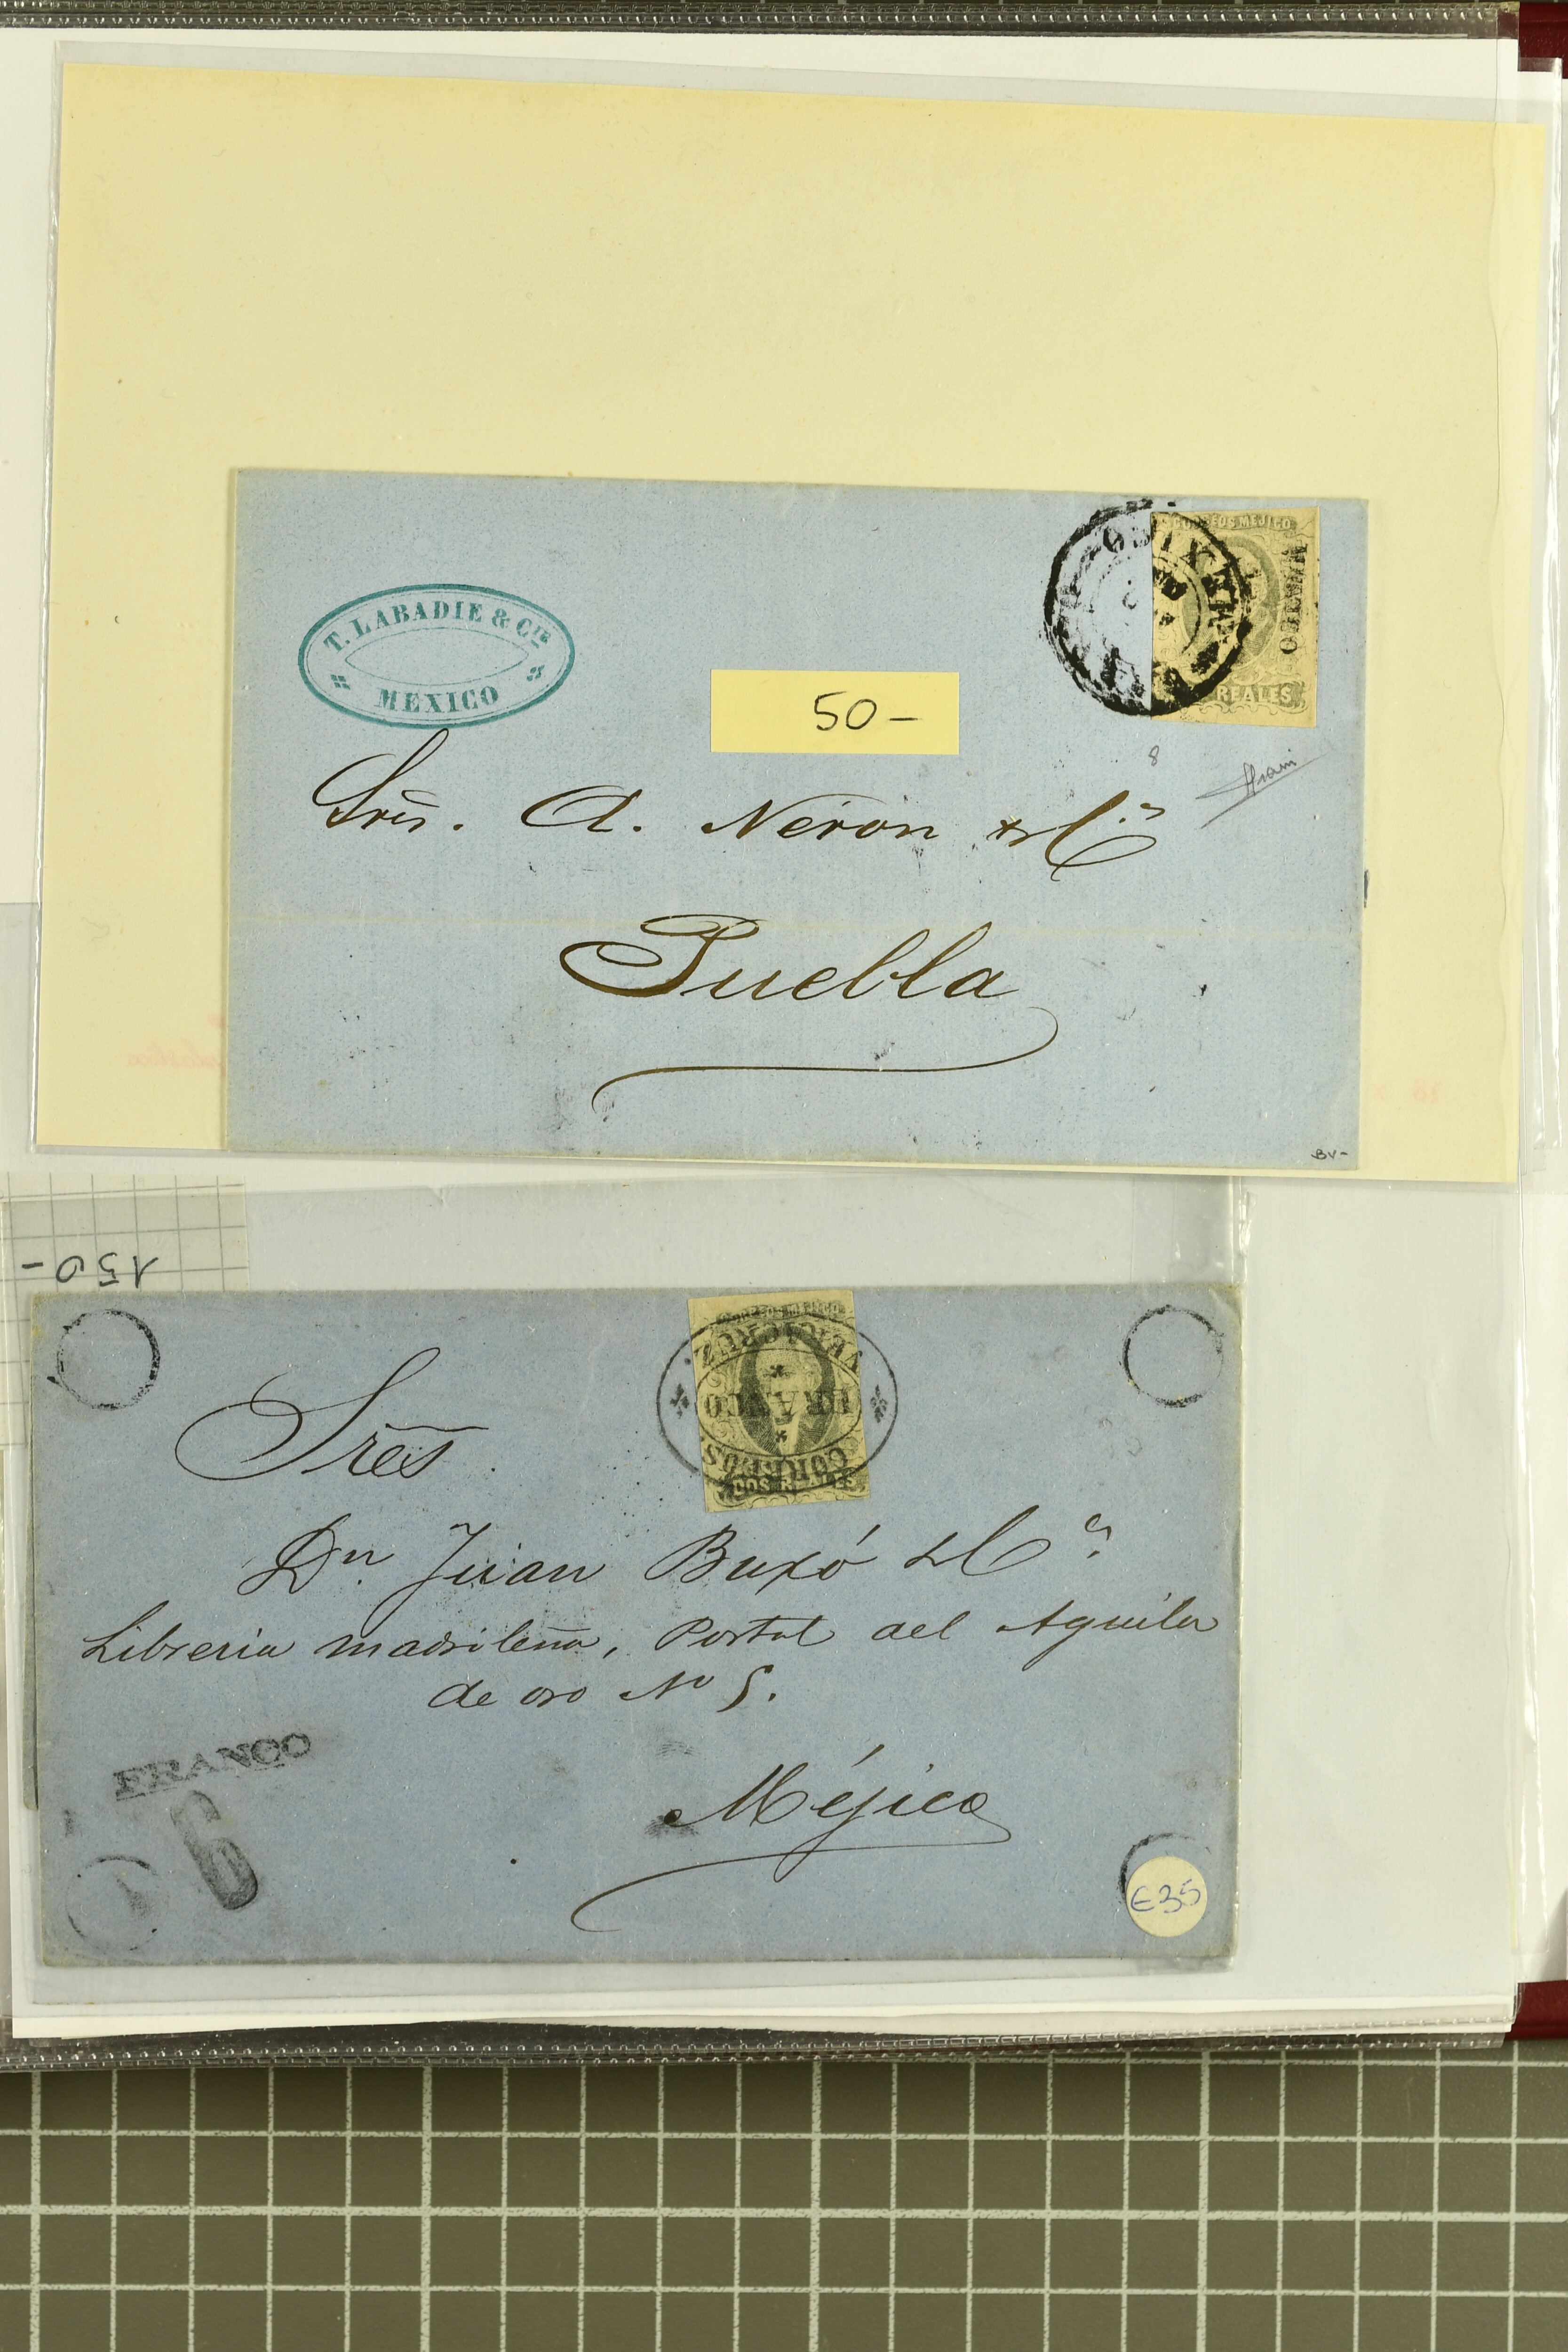 CORREOS MEJICO
MEXICO
MEXICO
REALES
T. LABADIE & Cie
MEXICO
50-
8
Sres. A. Neron y Ca
Puebla
BV-
150-
CORREOS MEJICO
VERACRUZ
FRANCO
CORREOS
DOS REALES
Sres
Dn. Juan Buxó y Ca.
Libreria madrileña, Portal del Aguila
de oro No 5.
Méjico
FRANCO
6
€35